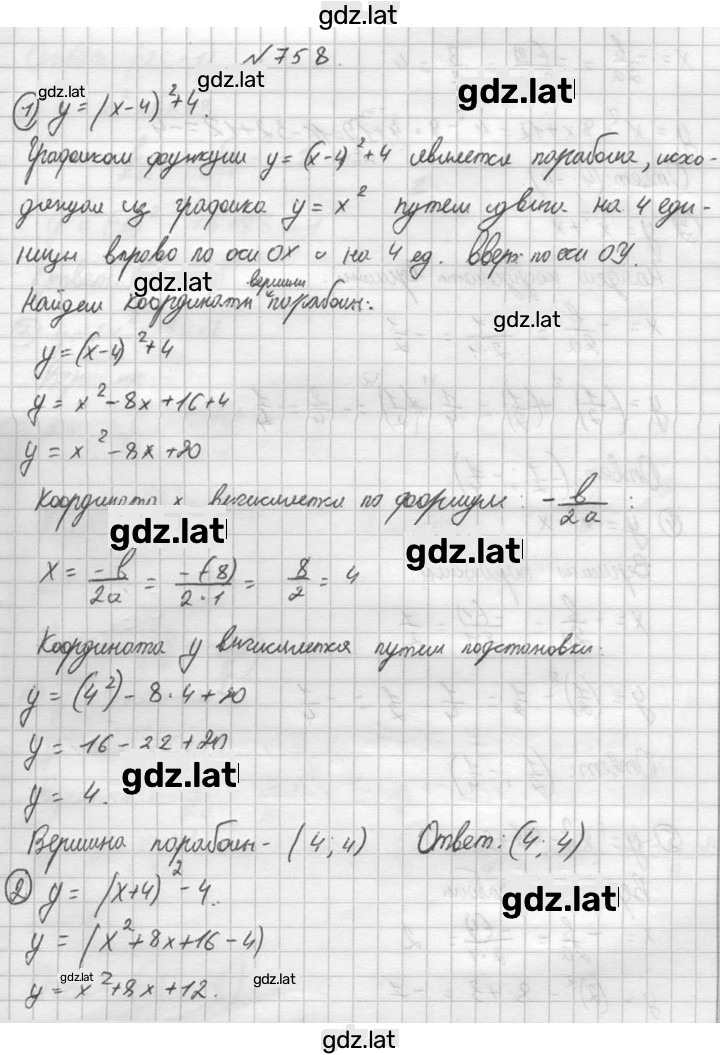 gdz.lat
№ 758.
gdz.lat
gdz.lat
gdz.lat
1) y = (x-4)²+4.
Графиком функции y = (x-4)²+4 является парабола, исхо-
дящая из графика y = x² путем сдвига на 4 еди-
ницы вправо по оси OX и на 4 ед. вверх по оси OY.
gdz.lat
Найдем координаты вершины параболы:
gdz.lat
y = (x-4)²+4
y = x²-8x+16+4
y = x²-8x+20
Координата x вычисляется по формуле: -b/2a :
gdz.lat
gdz.lat
x = -b/2a = -(-8)/2·1 = 8/2 = 4
Координата y вычисляется путем подстановки:
y = (4²) - 8·4+20
y = 16-22+20
gdz.lat
y = 4.
Вершина параболы - (4; 4) Ответ: (4; 4)
2) y = (x+4)²-4.
gdz.lat
y = (x²+8x+16-4)
gdz.lat
gdz.lat
y = x²+8x+12.
gdz.lat